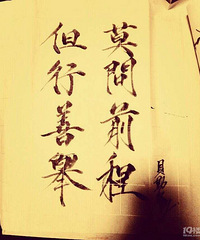 莫問前程
但行善舉